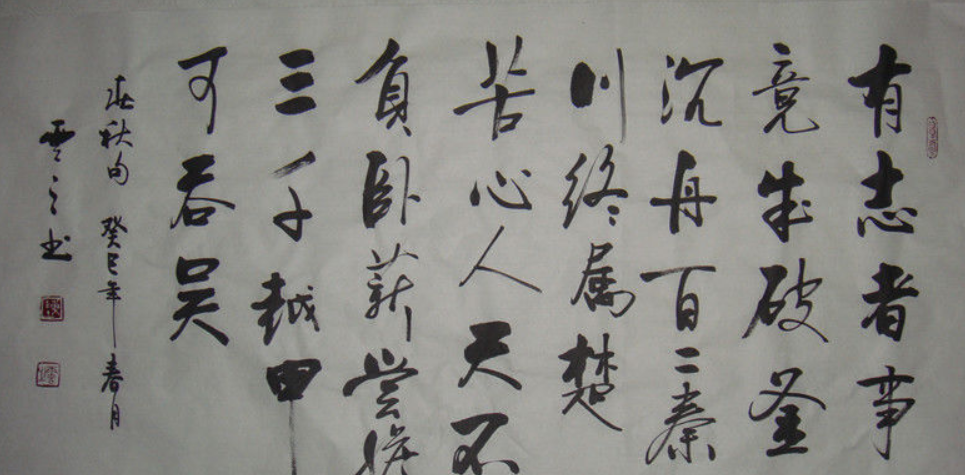 有志者事
竟成破釜
沉舟百二秦
川终属楚
苦心人天不
負卧薪尝膽
三千越甲
可吞吴
春秋句 癸巳年春月
雲之书